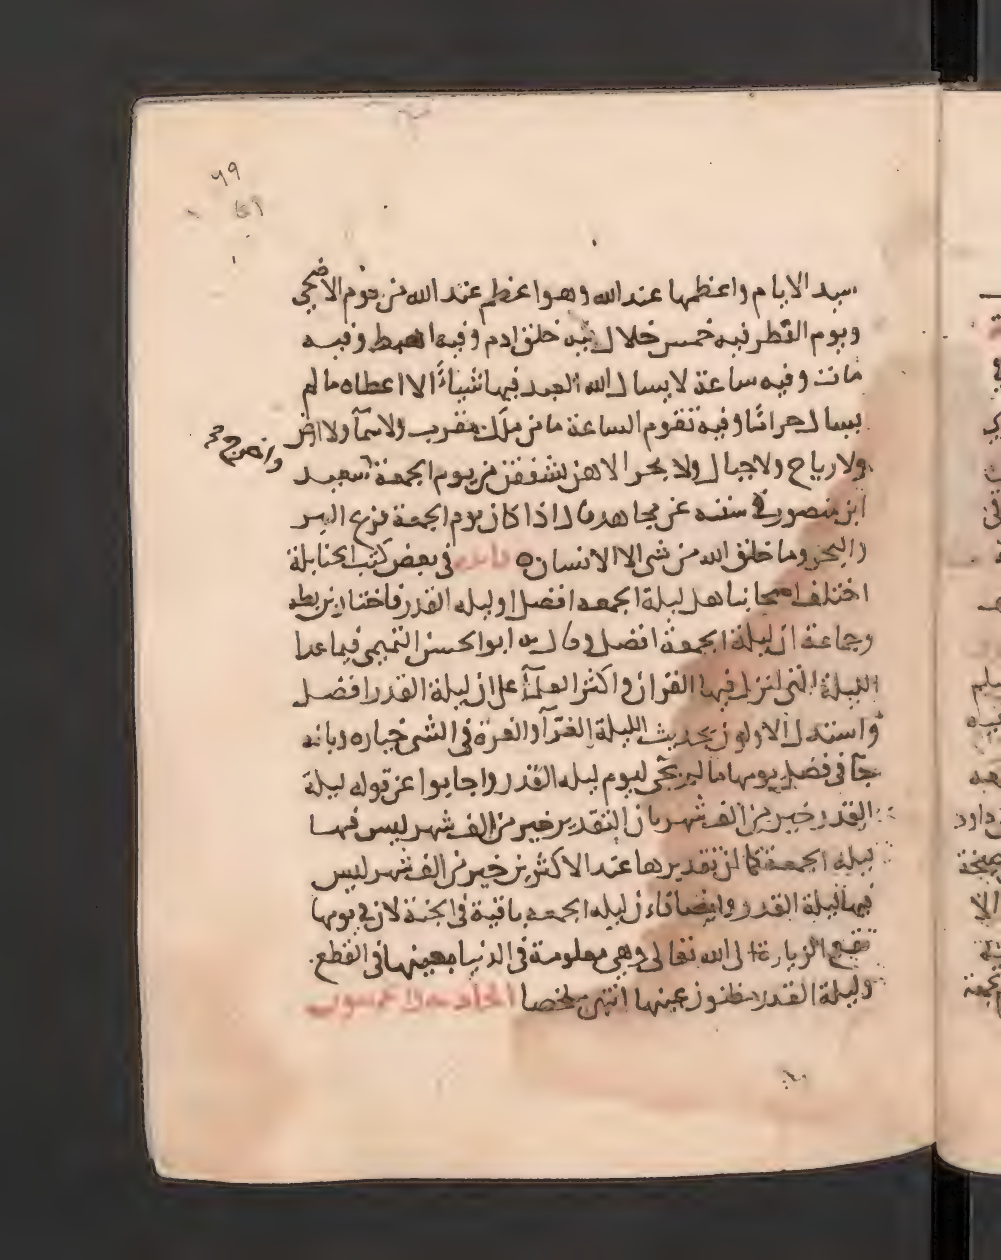 ٦٩
سيد الايام واعظمها عند الله وهو اعظم عند الله من يوم الاضحى
ويوم الفطر فيه خمس خلال فيه خلق ادم وفيه اهبط وفيه
مات وفيه ساعة لا يسال الله العبد فيها شياء الا اعطاه ما لم
يسال حراما وفيه تقوم الساعة ما من ملك مقرب ولا سما ولا ارض
ولا رياح ولا جبال ولا بحر الا هن يشفقن من يوم الجمعة سعيد
واخرج
ابن منصور في سننه عن مجاهد قال اذا كان يوم الجمعة فزع البر
والبحر وما خلق الله من شي الا الانسان فايدة في بعض كتب الحنابلة
اختلف اصحابنا هل ليلة الجمعه افضل او ليله القدر فاختار ابن بطه
وجماعة ان ليلة الجمعة افضل وقال به ابو الحسن التميمي فيما عدا
الليلة التي انزل فيها القران واكثر العلما على ان ليلة القدر افضل
واستدل الاولون بحديث الليلة الغرا والغرة في الشي خياره وبانه
جا في فضل يومها ما لم يجى ليوم ليله القدر واجابوا عن قوله ليلة
القدر خير من الف شهر بان التقدير خير من الف شهر ليس فيها
ليلة الجمعة كما ان تقديرها عند الاكثرين خير من الف شهر ليس
فيها ليلة القدر وايضا فان ليله الجمعه باقية في الجنة لان في يومها
تقع الزيارة الى الله تعالى وهي معلومة في الدنيا بعينها في القطع
وليلة القدر مظنون عينها انتهى ملخصا